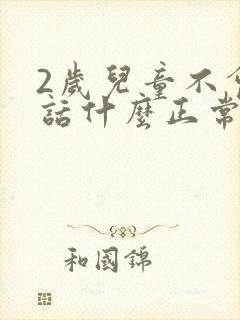 2歲兒童不會
話什麼正常
和國錦